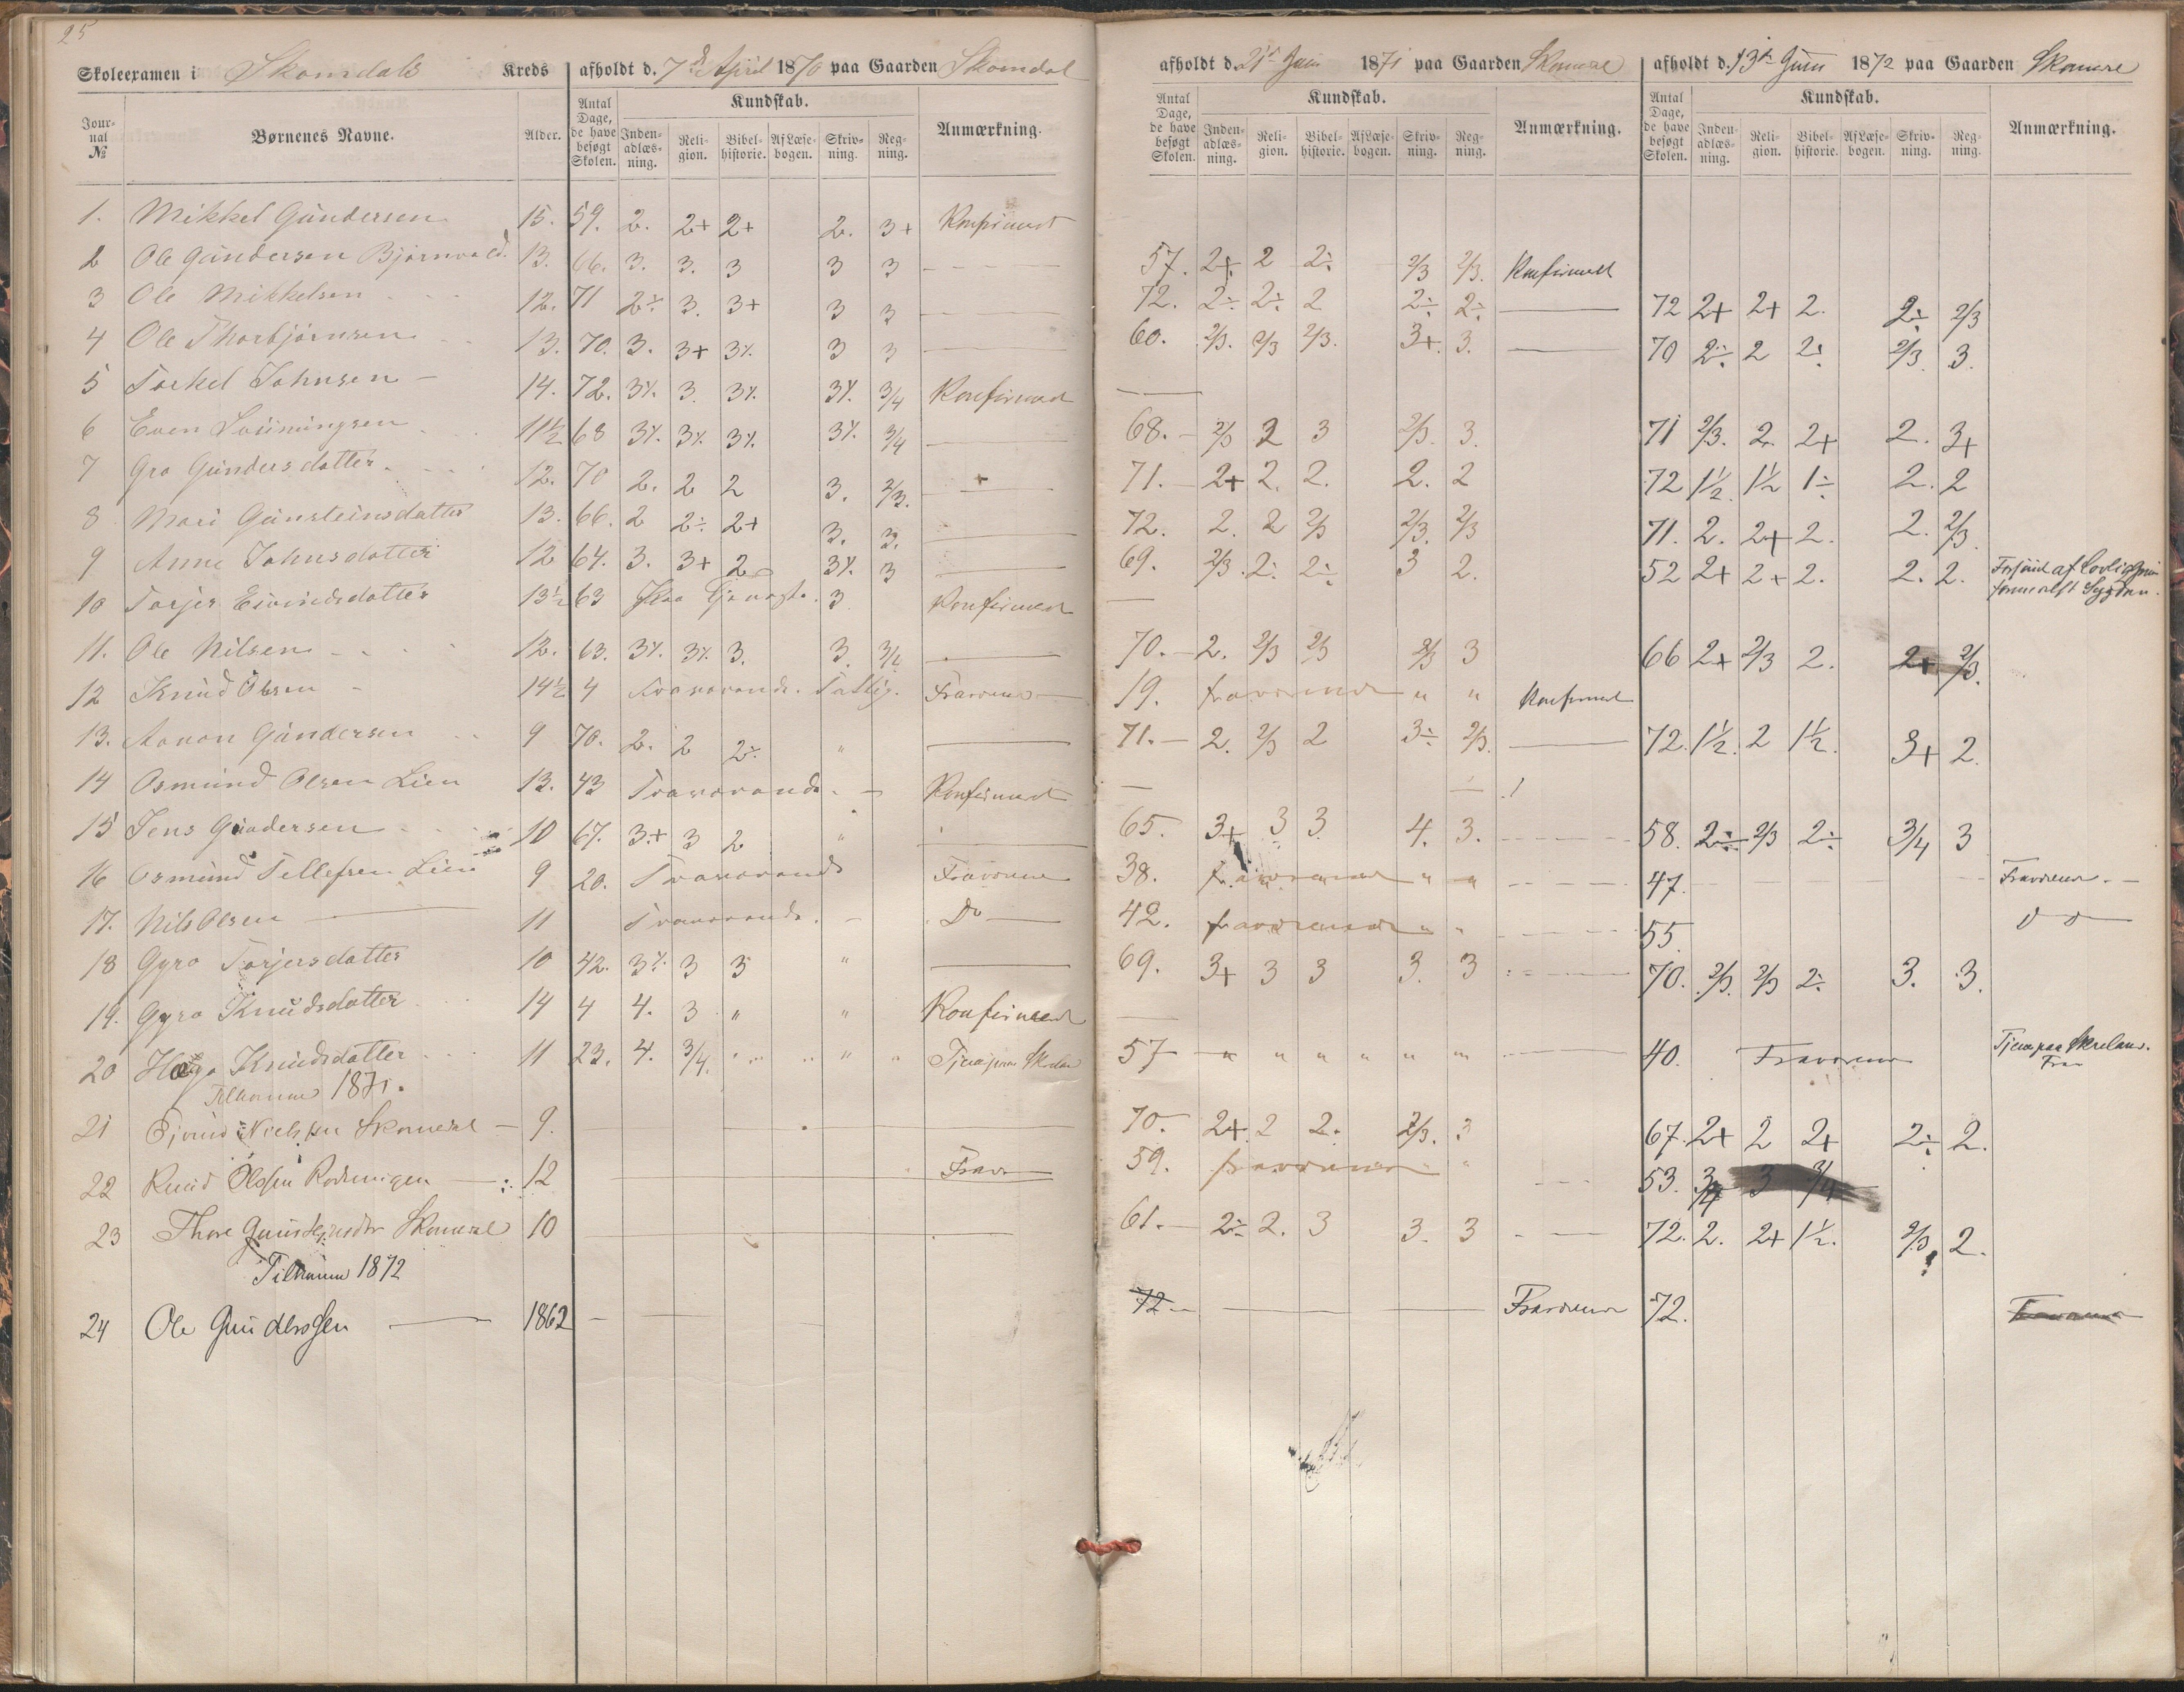 25
Skoleexamen i Skomdals Kreds afholdt d. 7de April 1870 paa Gaarden Skomdal
Jour-nal № Børnenes Navne. Alder. Antal Dage, de have besøgt Skolen. Kundskab. Inden-adlæs-ning. Reli-gion. Bibel-historie. Af Læse-bogen. Skriv-ning. Reg-ning. Anmærkning.
1. Mikkel Gündersen 15. 59. 2. 2+ 2+ 2. 3+ Konfirmert
2 Ole Gündersen 13. 66. 3. 3. 3 3 3
3 Ole Mikkelsen 12. 71 2÷ 3. 3+ 3 3
4 Ole Thorbjörnsen 13. 70. 3. 3+ 3÷ 3 3
5 Torkel Johnsen 14. 72. 3÷ 3. 3÷ 3÷ 3/4 Konfirmert
6 Even 11½ 68 3÷ 3÷ 3÷ 3÷ 3/4
7 Gro Gündersdatter 12. 70 2. 2 2 3. 2/3.
8 Mari Günsteinsdatter 13. 66. 2 2÷ 2+ 3. 3.
9 Anne Johnsdatter 12 64. 3. 3+ 2 3÷ 3
10 Torjer Eivindsdatter 13½ 63 3 Konfirmert
11. Ole Nilsen 12. 63. 3÷ 3÷ 3. 3. 3/4
12 Knüd Olsen 14½ 4 Fraværende. Fattig. Fraværende
13. Aanon Gündersen 9 70. 2. 2 2÷ "
14 Osmünd Olsen Lien 13. 43 Fraværende. Konfirmert
15 Jens Gündersen 10 67. 3+ 3 2 "
16 Osmünd Tellefsen Lien 9 20. Fraværende Fraværende
17. Nils Olsen 11 Fraværende. Do
18 Gyro Torjersdatter 10 42. 3÷ 3 3 "
19. Gyro Knüdsdatter 14 4 4. 3 " " Konfirmert
20 Helga Knüdsdatter 11 23. 4. 3/4. " " "
Tilkomne 1871.
21 Eivind Nielsen Skomdal 9.
22 Knud Olsen 12 Frav.
23 Thore Skomdal 10
Tilkomne 1872
24 Ole Gunderssen 1862
afholdt d. 21de Juni 1871 paa Gaarden Skomdal
Antal Dage, de have besøgt Skolen. Kundskab. Inden-adlæs-ning. Reli-gion. Bibel-historie. Af Læse-bogen. Skriv-ning. Reg-ning. Anmærkning.
57. 2+ 2 2÷ 2/3 2/3. Konfirmert
72. 2÷ 2÷ 2 2÷ 2÷
60. 2/3. 2/3 2/3. 3+ 3.
68. 2/3 2 3 2/3. 3.
71. 2+ 2. 2. 2. 2
72. 2. 2 2/3 2/3. 2/3
69. 2/3. 2÷ 2÷ 3 2.
70. 2. 2/3 2/3 2/3 3
19. fraværende " " Konfirmert
71. 2. 2/3 2 3÷ 2/3.
65. 3+ 3 3 4. 3.
38. fraværende " "
42. fraværende " "
69. 3+ 3 3 3. 3
57 " " " " " "
70. 2+ 2 2. 2/3. 3
59. fraværende "
61. 2÷ 2. 3 3. 3
72 Fraværende
afholdt d. 13de Juni 1872 paa Gaarden Skomdal
Antal Dage, de have besøgt Skolen. Kundskab. Inden-adlæs-ning. Reli-gion. Bibel-historie. Af Læse-bogen. Skriv-ning. Reg-ning. Anmærkning.
72 2+ 2+ 2. 2÷ 2/3
70 2÷ 2 2÷ 2/3. 3.
71 2/3. 2. 2+ 2. 3+
72 1½ 1½ 1÷ 2. 2
71. 2. 2+ 2. 2. 2/3.
52 2+ 2+ 2. 2. 2.
66 2+ 2/3 2. 2+ 2/3.
72. 1½. 2 1½. 3+ 2.
58. 2÷ 2/3 2÷ 3/4 3
47. Fraværende.
55. do
70. 2/3. 2/3 2÷ 3. 3.
40. Fraværende
67. 2+ 2 2+ 2÷ 2.
53. 3/4 3 3/4
72. 2. 2+ 1½. 2/3. 2.
72. Fraværende